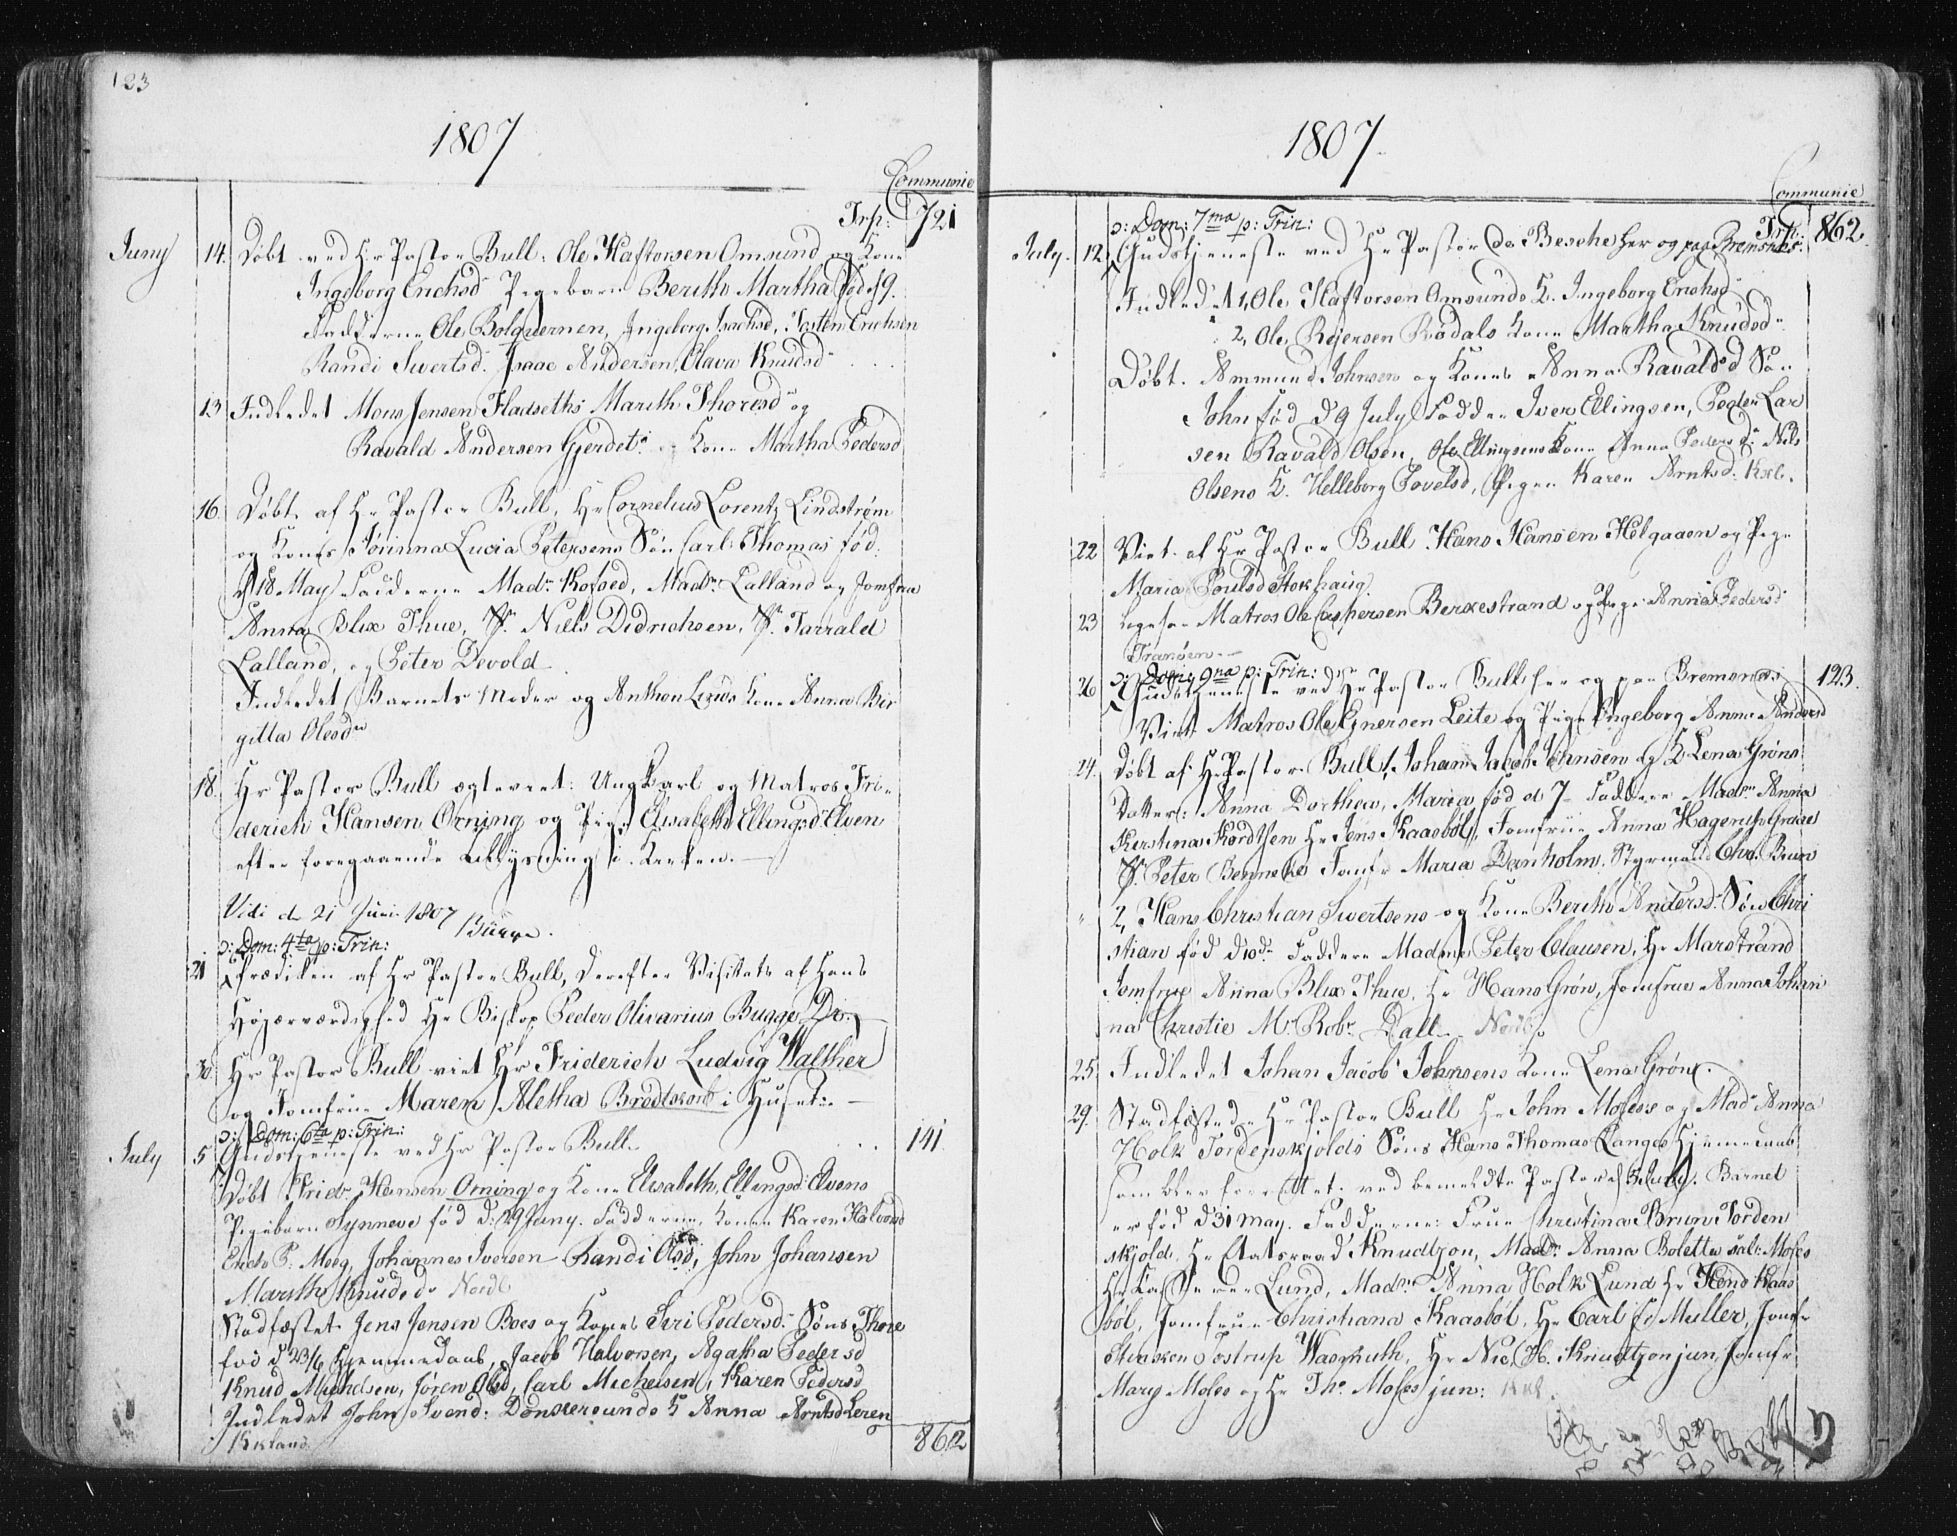 123
1807
Communic
Trsp: 721
Juny 14. Døbt ved Hr Pastor Bull: Ole Haftorsen Omsund og Kone
Ingeborg Erichsd Pigebarn Berith Martha fød d 9.
Fadderne Ole Bolgværnen, Ingeborg Isachsd, Josten Erichsen
Randi Sivertsd. Isaac Andersen, Olava Knudsd
13 Indledet Mons Jensen Fladseths Marith Thoresd og
Ravald Andersen Gjerdets Kone Martha Pedersd
16. Døbt af Hr Pastor Bull, Hr Cornelius Lorentz Lindstrøm
og Kones Jørinna Lucia Petersens Søn Carl Thomas fød
d 18 May Fadderne Madm Kofoed, Madm Lalland og Jomfrue
Anna Blix Thue, Sr. Niels Didrichsen, Sr. Tarrald
Lalland, og Peter Devold
Indledet Barnets Moder og Anthon Kone Anna Bir
gitta Olesdr
18. Hr Pastor Bull ægteviet: Ungkarl og Matros Fri-
derich Hansen Orning og Pige Elisabeth Ellingsd Elven
efter foregaaende Lysning i Kirken.
Vidi d 21 Juni 1807 Bugge.
ɔ: Dom: 4ta p: Trin:
21 Prædiken af Hr Pastor Bull, derefter Visitats af Hans
Højærværdighed Hr Biskop Peder Olivarius Bugge Dr.
30. Hr Pastor Bull viet Hr Friderich Ludvig Walther
og Jomfrue Maren Aletha Bredtkorb i Huset
ɔ: Dom: 6ta p: Trin:
July 5 Gudstjeneste ved Hr Pastor Bull . . 141
Døbt Fridr Hansen Orning og Kone Elisabeth Ellingsd Elvens
Pigebarn Synneve fød d: 29 Juny. Fadderne, Konen Karen Halvorsd
Erich P: Moeg, Johannes Iversen Randi Olsd, John Johansen
Marith Knudsd Nordl
Stadfæstet Jens Jensen Boes og Kones Siri Pedersd: Søns Thore
fød d 23/6 Hjemmedaab, Jacob Halvorsen, Agatha Pedersd
Knud Michelsen, Jøren Olsd, Carl Michelsen, Karen Pedersd
Indledet John Svend: Donkersunds K Anna Arntsd Leren
Kirkland.
862
1807
Communic
Trsp: 862
ɔ: Dom: 7ma p: Trin:
July 12 Gudstjeneste ved Hr Pastor De Besche her og paa Bremsnes:
Indledet 1, Ole Haftorsen Omsunds K. Ingeborg Erichsd
2, Ole Rejersen Rødals Kone Martha Knudsd
Døbt. Ammund Johnsen og Kones Anna Ravaldsd Søn
John fød d 9 July Faddere Iver Ellingsen, Peder Lar
sen Ravald Olsen, Ole Ellingsens Kone Anna Pedersd: Nils
Olsens K. Helleborg Povelsd, Pigen Karen Arntsd. Kirkl.
22 Viet af Hr Pastor Bull Hans Hansen Helgaaen og Pige
Maria Poulsd Stokhaug.
23 Ligesaa Matros Ole Caspersen Berxestrand og Pige Anna Pedersd
Tranøen.
ɔ: Dom: 9na p: Trin:
26 Gudstjeneste ved Hr Pastor Bull her og paa Bremsnes 123.
Viet Matros Ole Ejnersen Leite og Pige Ingeborg Anna Andersd
24. Døbt af Hr Pastor Bull 1, Johan Jacob Johnsen og K Lena Grøns
Datter: Anna Dorthea, Maria fød d 7 Faddere Madm Anna
Kirstina Hr Jens Kaasbøl, Jomfrue Anna
Sr. Peter Benneke Jomfr Maria Danholm. Styrmand Chr. Brun
2, Hans Christian Sivertsens og Kone Berith Andersd. Søn Chri
stian fød d 10de Faddere Madme Peter Clausen, Hr Marstrand
Jomfrue Anna Blix Thue, Hr Hans Grøn, Jomfrue Anna Johan
na Christie Mr. Robr. Dall Nordl
25 Indledet Johan Jacob Johnsens Kone Lena Grøn.
29. Stadfæstede Hr Pastor Bull Hr John Moses og Madm Anna
Holk Tordenskjolds Søns Hans Thomas Langes Hjemmedaab
som blev forrettet ved bemeldte Pastor d July. Barnet
er fød d 31 May. Fadderne: Frue Christina Brun Torden
skjold Hr Etatsraad Knudtzon, Madm Anna Boletta sal: Moses
Hr Lund, Madm Anna Holk Lund Hr Kaas
bøl, Jomfrue Christiana Kaasbøl, Hr Carl Fr Muller, Jomfr
Tostrup Wasmuth, Hr Nic H. Knudtzon jun, Jomfr
Mary Moses og Hr Ths Moses jun: